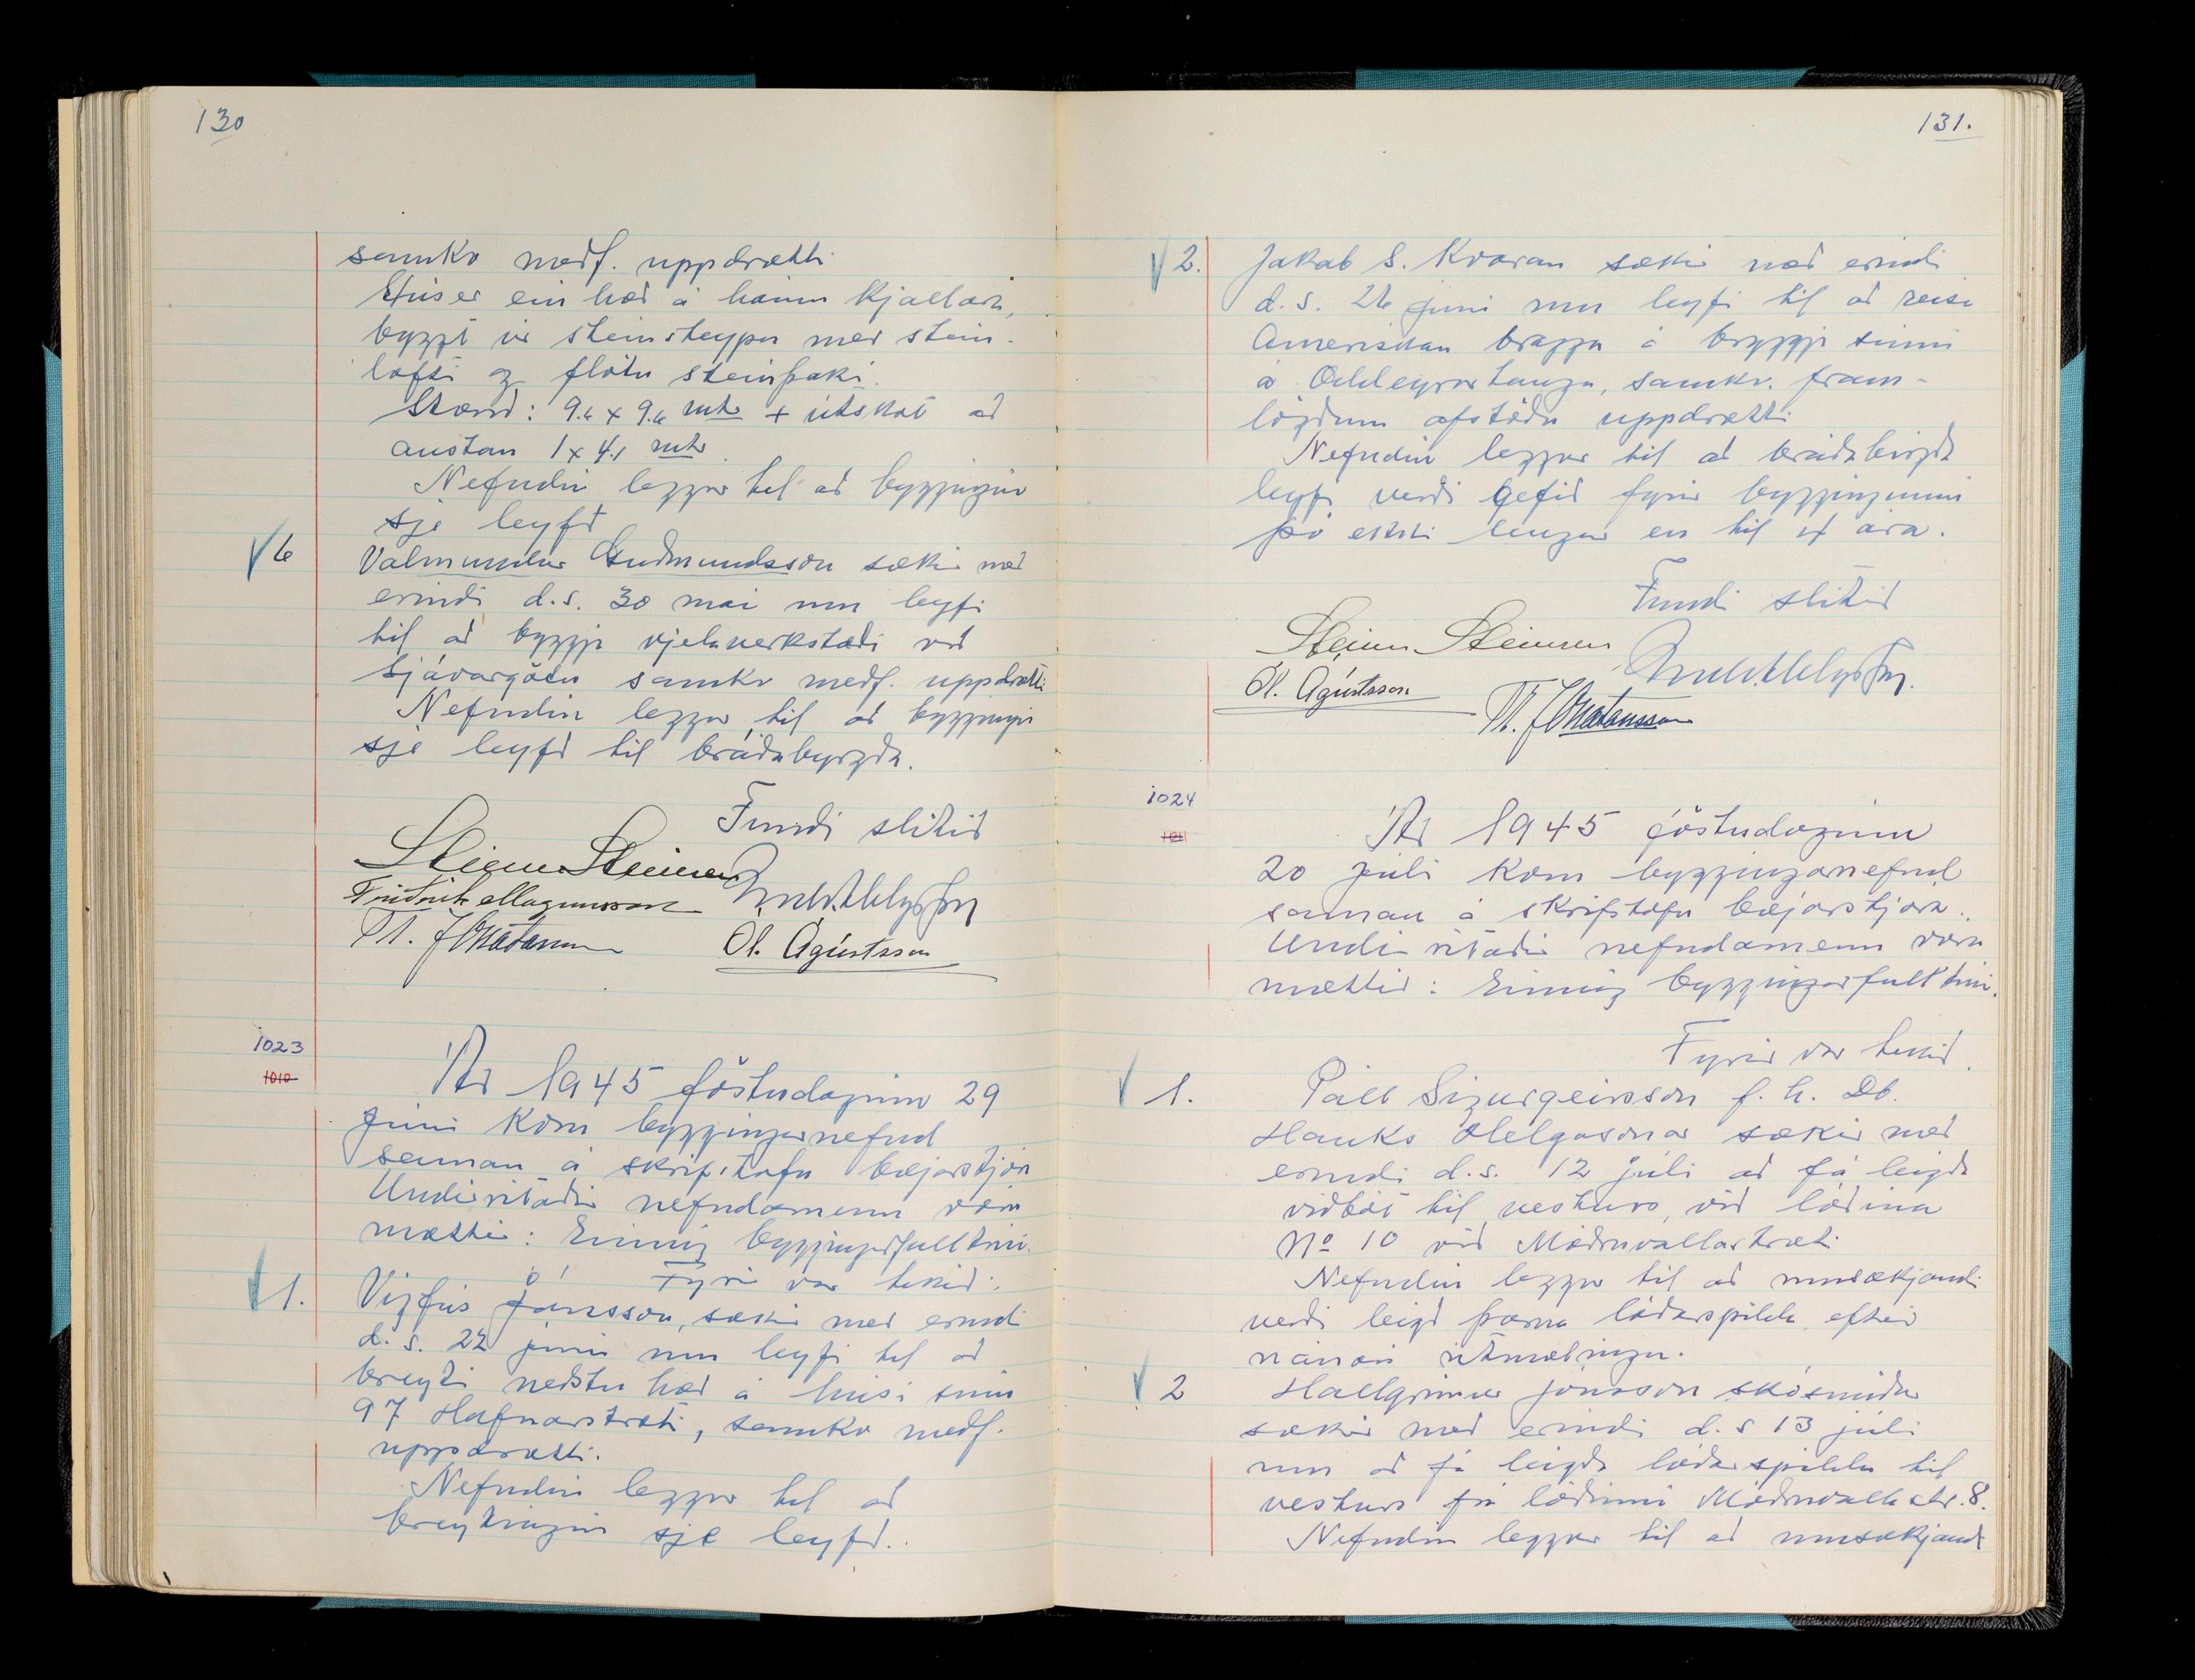 130
samkv medf. uppdrætti
Hús er ein hæd á háum kjallara,
byggt úr steinsteypu med stein-
lofti og flötu steinþaki.
Stærd: 9.6 x 9.6 mtr + útskot ad
austan 1 x 4.1 mtr
Nefndin leggur til ad byggingin
sje leyfd
6 Valmundur Gudmundsson sækir med
erindi d.s. 30 mai um leyfi
til ad byggja vjelaverkstædi vid
Sjávargötu samkv medf. uppdrætti
Nefndin leggur til ad byggingin
sje leyfd til brádabyrgda.
Fundi slitid
Steinn Steinsen
Fridrik Magnusson
Tr. Jónatansson Ól. Ágústsson
1023
1010
Ár 1945 föstudaginn 29
Júni kom bygginganefnd
saman á skrifstofu bæjarstjóra
Undirritadir nefndamenn voru
mættir: Einnig byggingafulltrúi.
Fyrir var tekid:
1. Vigfús Jónsson, sækir med erindi
d.s. 22 júní um leyfi til ad
breyta nedstu hæd á húsi sínu
97 Hafnarstræti, samkv medf.
uppdrætti.
Nefndin leggur til ad
breytingin sje leyfd.
131.
2. Jakob S. Kvaran sækir med erindi
d.s. 26 juni um leyfi til ad reisa
Ameriskan bragga á bryggju sinni
á Oddeyrartanga, samkv. fram-
lögdum afstödu uppdrætti
Nefndin leggur til ad brádabirgda
leyfi verdi gefid fyrir byggingunni
þó ekki lengur en til 4 ára.
Fundi slitid
Steinn Steinsen
Ól. Ágústsson
Tr. Jónatansson
1024
1011
Ár 1945 föstudaginn
20 júli kom bygginganefnd
saman á skrifstofu bæjarstjóra.
Undirritadir nefndamenn voru
mættir: Einnig byggingafulltrúi.
Fyrir var tekid
1. Páll Sigurgeirsson f. h. Db.
Hauks Helgasonar sækir med
erindi d.s. 12 júli ad fá leigda
vidbót til vesturs, vid lódina
No 10 vid Mödruvallastræti
Nefndin leggur til ad umsækjandi
verdi leigd þarna lódarspilda, eftir
nánari útmælingu.
2 Hallgrimur Jónsson skósmidur
sækir med erindi d.s 13 júli
um ad fá leigda lódarspildu til
vesturs frá lódinni Mödruvallastr. 8.
Nefndin leggur til ad umsækjandi